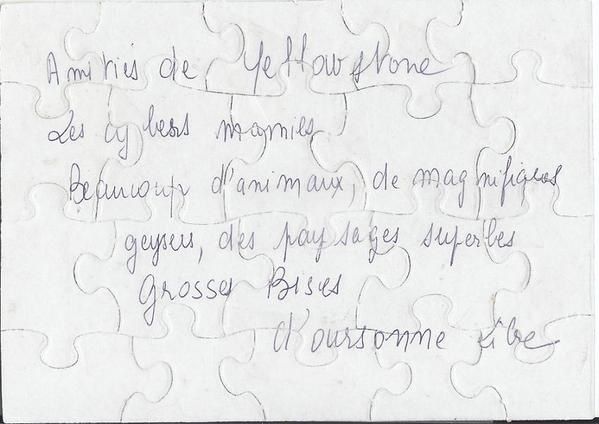 Amitiés de Yellowstone
Les cybers mamies
Beaucoup d'animaux, de magnifiques
geysers, des paysages superbes
Grosses Bises
d'oursonne libre